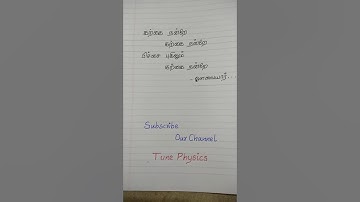 கற்கை நன்றே
கற்கை நன்றே
பிச்சை புகினும்
கற்கை நன்றே
- ஔவையார்.
Subscribe
Our Channel
Tune Physics